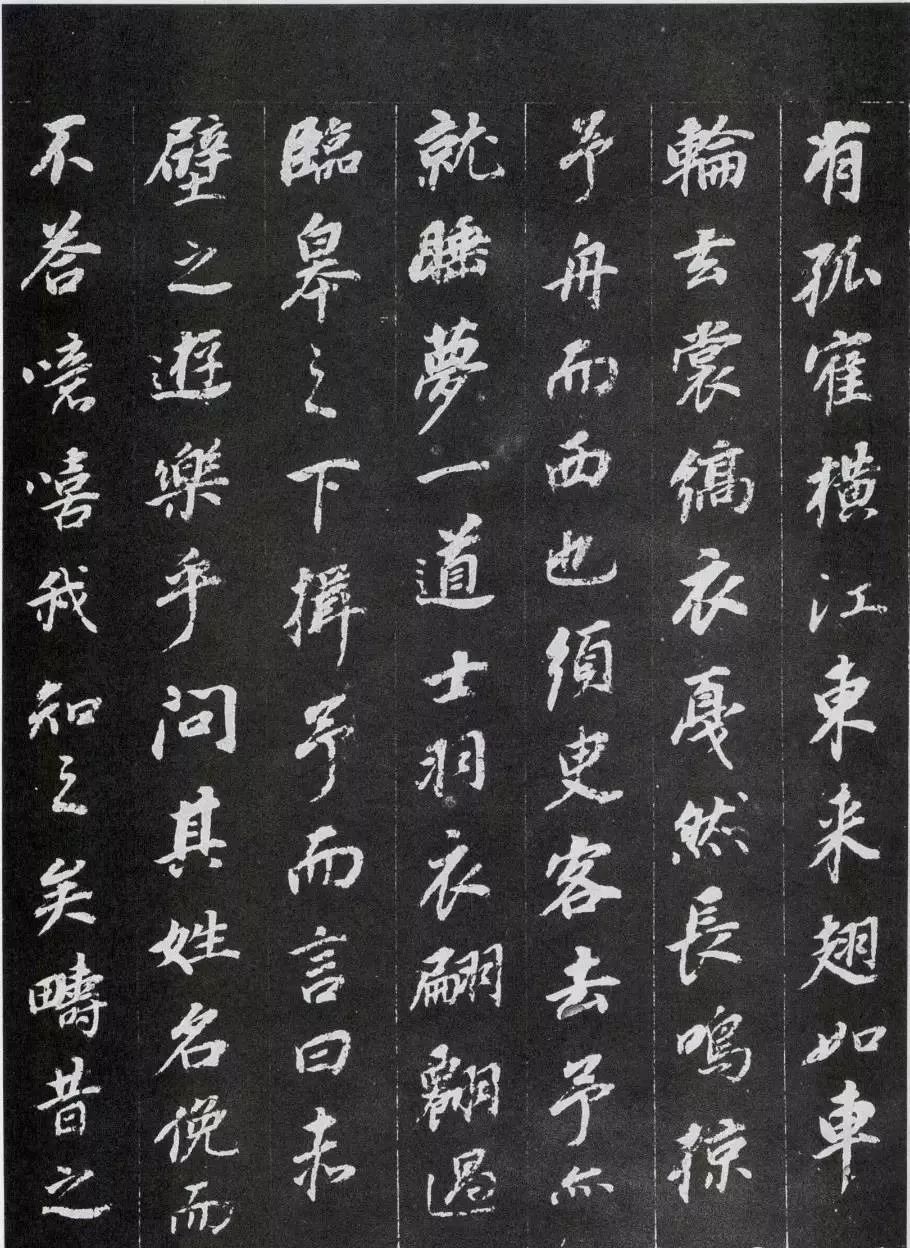 有孤隺橫江東来翅如車
輪玄裳縞衣戛然長鳴掠
予舟而西也須臾客去予亦
就睡夢一道士羽衣翩翻過
臨皋之下揖予而言曰赤
壁之遊樂乎問其姓名俛而
不荅噫嘻我知之矣疇昔之